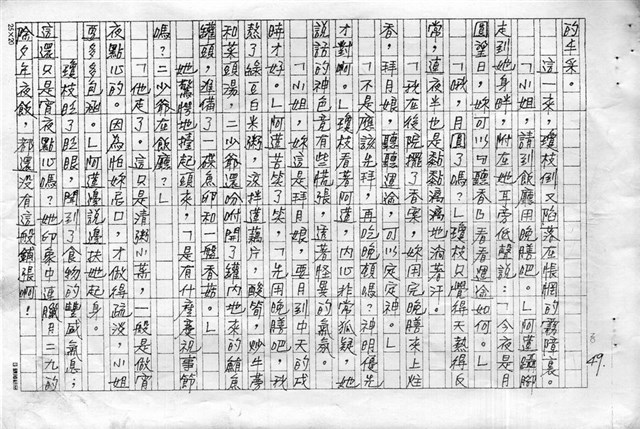 的年采。
這一來，瓊枝倒又陷落在悵惘的霧暗裏。
「小姐，請到飯廳用晚膳吧。」阿蓮躡腳
走到她身畔，附在她耳旁低聲說：「今夜是月
圓望日，妳可以句聽香日看看運途如何。」
「哦，月圓了嗎？」瓊枝只覺得天熱得反
常，連夜半也是黏黏漓漓地淌著汗。
「現在後院擺了香案，妳用完晚膳來上炷
香，拜月娘，聽聽運途，可以定定神。」
「不是應該先拜，再吃晚頓嗎？神明優先
才對啊。」瓊枝看著阿蓮，內心非常狐疑，她
說話的神色竟有些慌張，透著怪異的氣氛。
「小姐，妳這是拜月娘，要月到中天的戌
時才好。」阿蓮苦笑了笑，「先用晚膳吧。我
熬了綠豆白米粥，涼拌蓮藕片，酸筍，炒牛蒡
和菜頭湯，二少爺還吩咐開了罐內地來的鮪魚
罐頭，準備了一碟魚卵和一盤香菇。」
她驚愕地擡起頭來，「是有什產喜視事節
嗎？二少爺在飯廳？」
「他走了。這只是清粥小菜，一般是做宵
夜點心的。因為怕妳忌口，才做得疏淡，小姐
要多多包涵。」阿蓮邊說邊扶她起身。
瓊枝眨了眨眼，聞到了食物的豐盛氣息；
這還只是宵夜點心嗎？她印象中連臘月二九的
除夕年夜飯，都還沒有這般鋪張啊！
49.
8
25×20